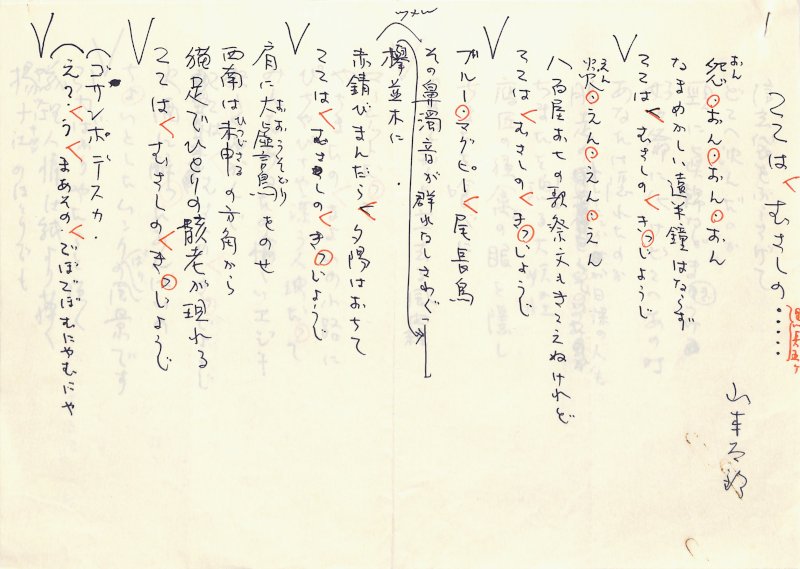 1
ここは むさしの・・・・・
山本太郎
怨・おん・おん・おん
おん
なまめかしい遠半鐘はならず
ここは むさしの きちじょうじ
炎・えん・えん・えん
えん
八百屋お七の歌祭文もきこえぬけれど
ここは むさしの きちじょうじ
ブルー・マグピー 尾長鳥
その鼻濁音が群れなしさわぐ
欅並木に
赤錆びまんだら 夕陽はおちて
ここは むさしの きちじょうじ
肩に大嘘言鳥をのせ
おおうそどり
西南は未申の方角から
ひつじさる
猫足でひとりの骸老が現れる
ここは むさしの きちじょうじ
ゴサンポデスカ・
ええ・うん まあその でぼでぼむにゃむにゃ